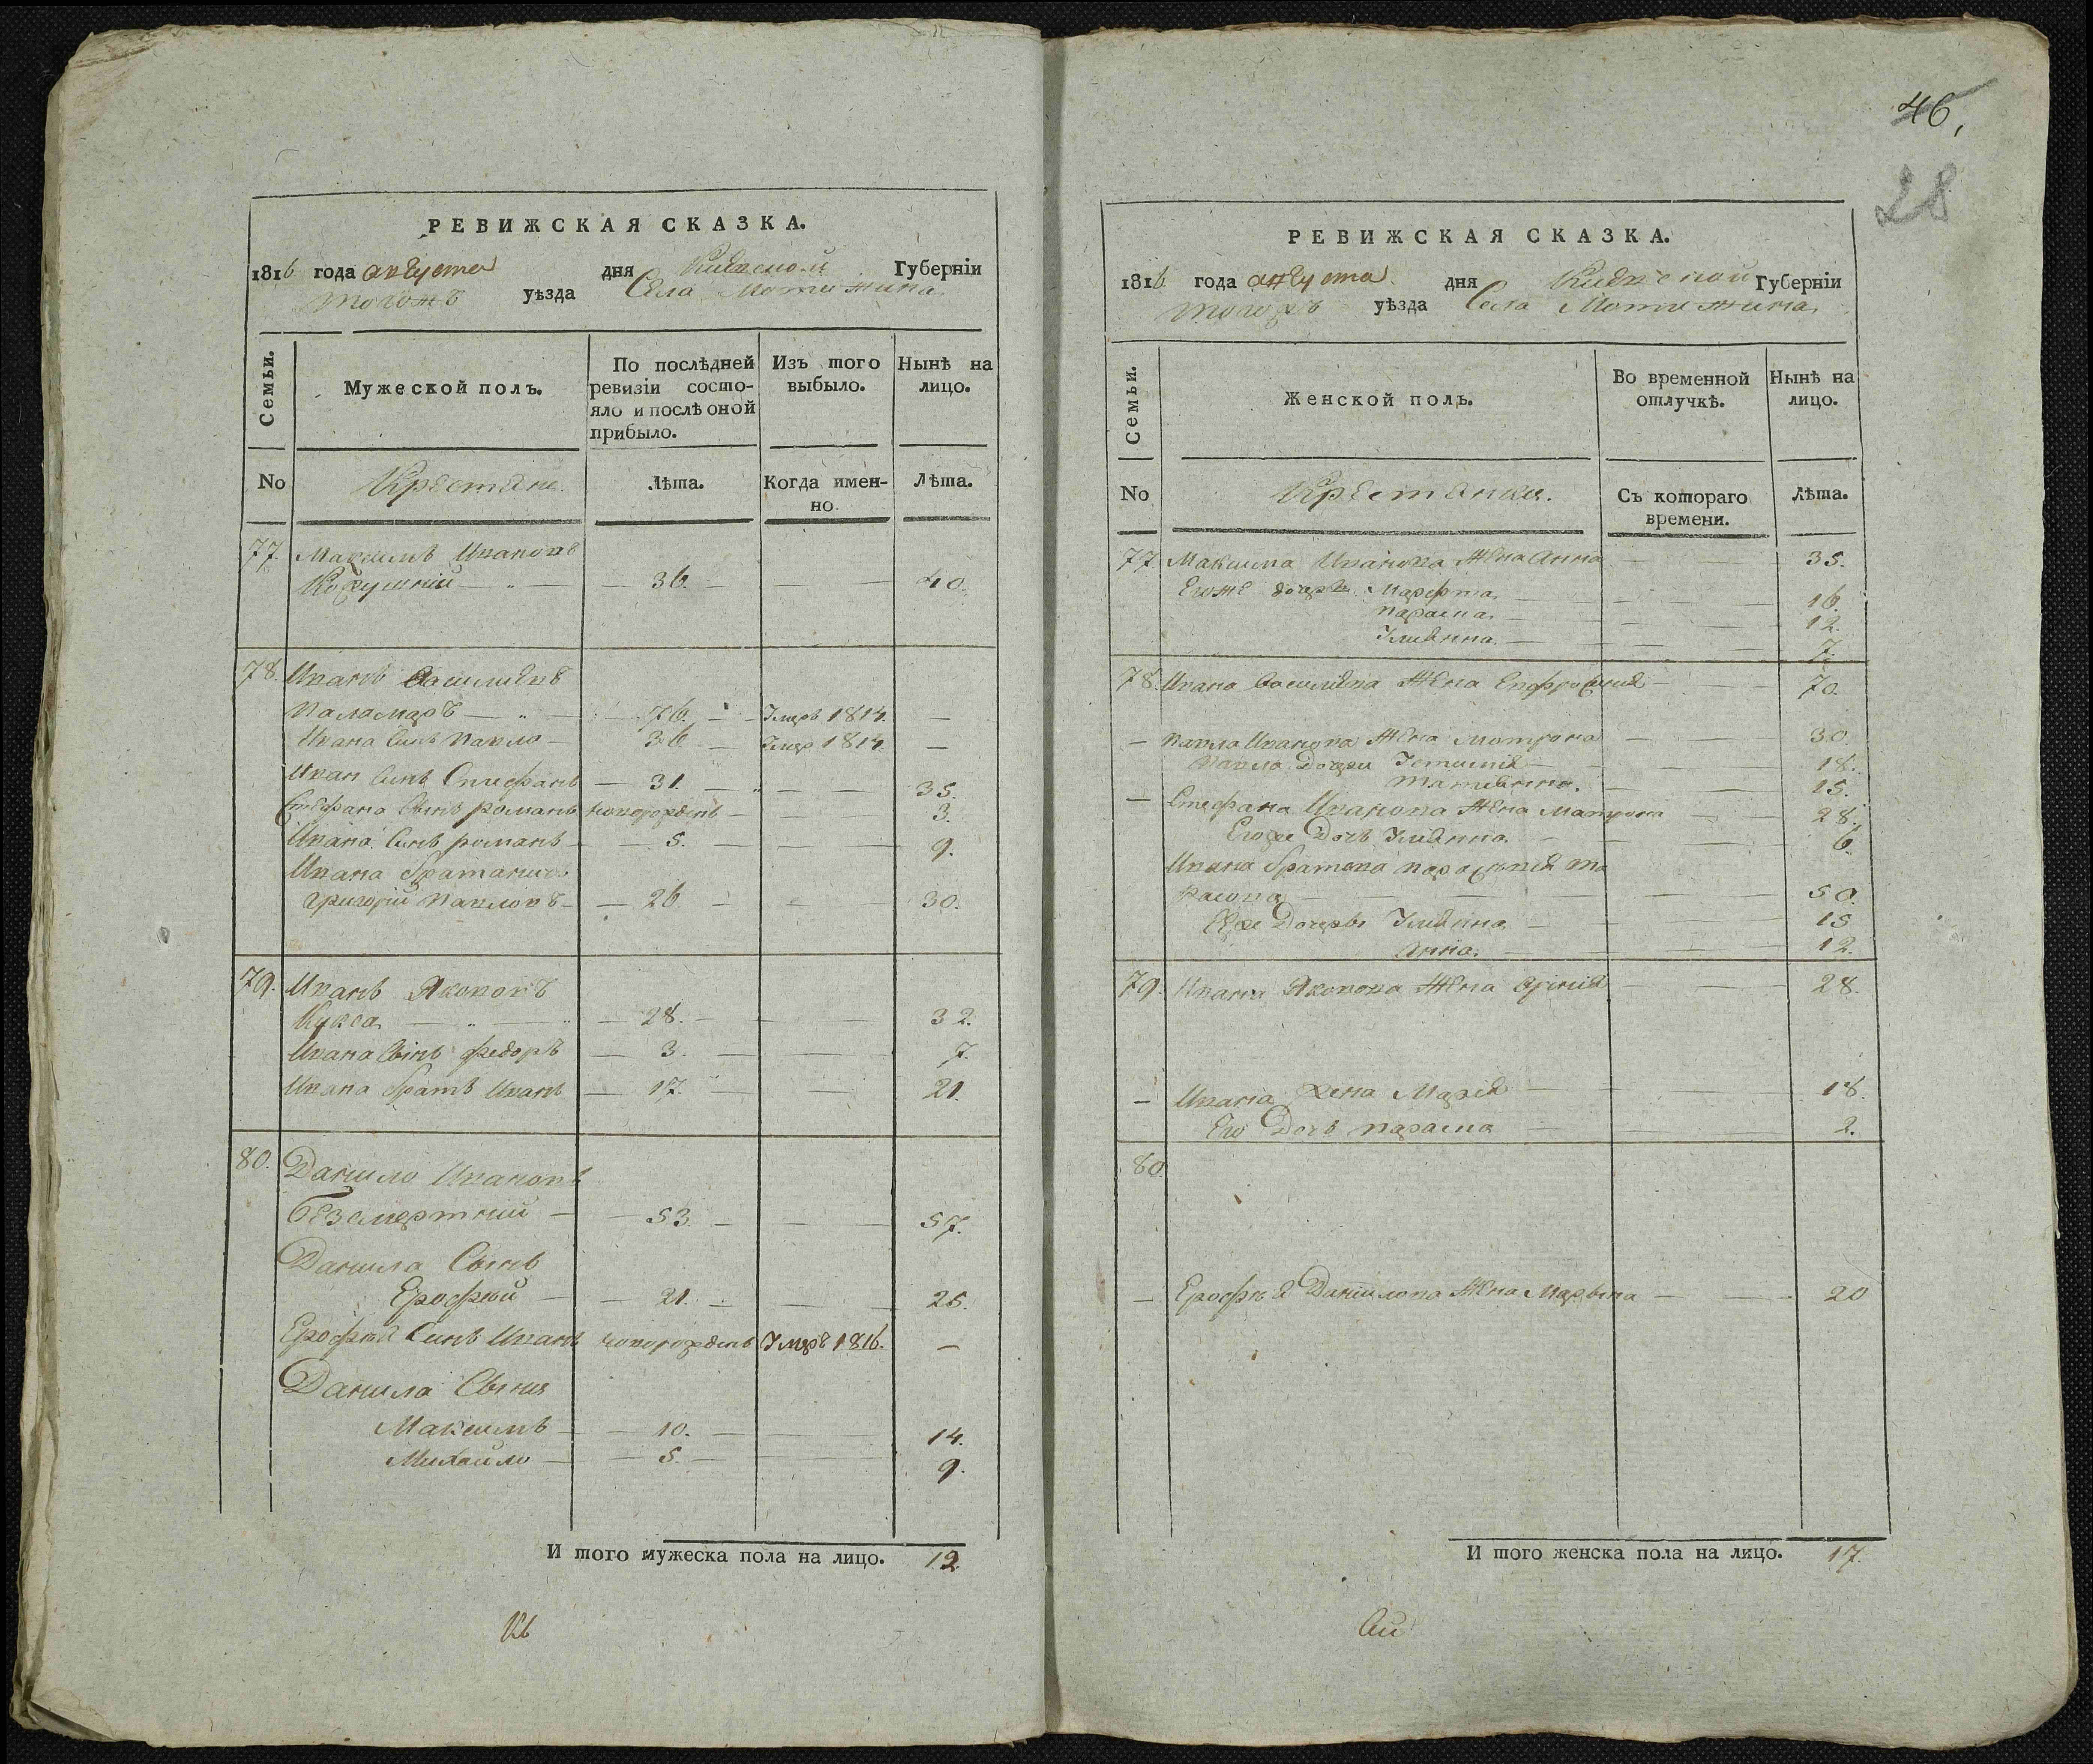 РЕВИЖСКАЯ СКАЗКА.
1816 года августа дня Киевской Губерніи
тогожъ уѣзда Села Мотижина
Семьи.
Мужеской полъ.
По послѣдней ревизіи состо-
яло и послѣ оной
прибыло.
Изъ того
выбыло.
Нынѣ на
лицо.
No
Крестяне
Лѣта.
Когда имен-
но.
Лѣта.
77. Максимъ Ивановъ
Кожушній — 36. — 40.
78. Иванъ Василиевъ
Паламаръ — 76. — Умеръ 1814. —
Ивана Синъ Павло — 36 — Умер 1814. —
Иван Синъ Стефанъ — 31. — 35.
Стефана Синъ романъ новорожденъ — 3.
Ивана Синъ романъ — 5. — 9.
Ивана братаничъ
григорій Павловъ — 26 — 30.
79. Иванъ Якововъ
Кукса — 28. — 32.
Ивана Синъ федоръ — 3. — 7.
Ивана братъ Иванъ — 17. — 21.
80. Данило Ивановъ
безмертній — 53. — 57.
Данила Синъ
Ерофѣй — 21. — 25.
Ерофѣя Синъ Иванъ новорожденъ Умеръ 1816. —
Данила Сыни
Максимъ — 10. — 14.
Михайло — 5. — 9.
И того мужеска пола на лицо. 12
46,
28
РЕВИЖСКАЯ СКАЗКА.
1816 года августа дня Киевской Губерніи
тогожъ уѣзда Села Мотижина
Семьи.
Женской полъ.
Во временной
отлучкѣ.
Нынѣ на
лицо.
No
Крестянки.
Съ котораго
времени.
Лѣта.
77 Максима Иванова Жена Анна — 35.
Егоже дочери Марфта — 16.
Параша — 12.
Улияна — 7.
78. Ивана Василиева Жена Евфросиния — 70.
— Павла Иванова Жена Мотрона — 30.
Павла Дочери Устимия — 18.
Татианна. — 15.
— Стефана Иванова Жена Матрона — 28.
Егоже Дочь Улияна — 6.
Ивана братова
— 50.
Дочери Улияна — 15
Анна. — 12.
79. Ивана Яковова Жена Ориния — 28.
— Ивана жена Мария — 18.
Его Дочь параша — 2.
80.
— Ерофѣя Данилова Жена Марвина — 20
И того женска пола на лицо. 17.